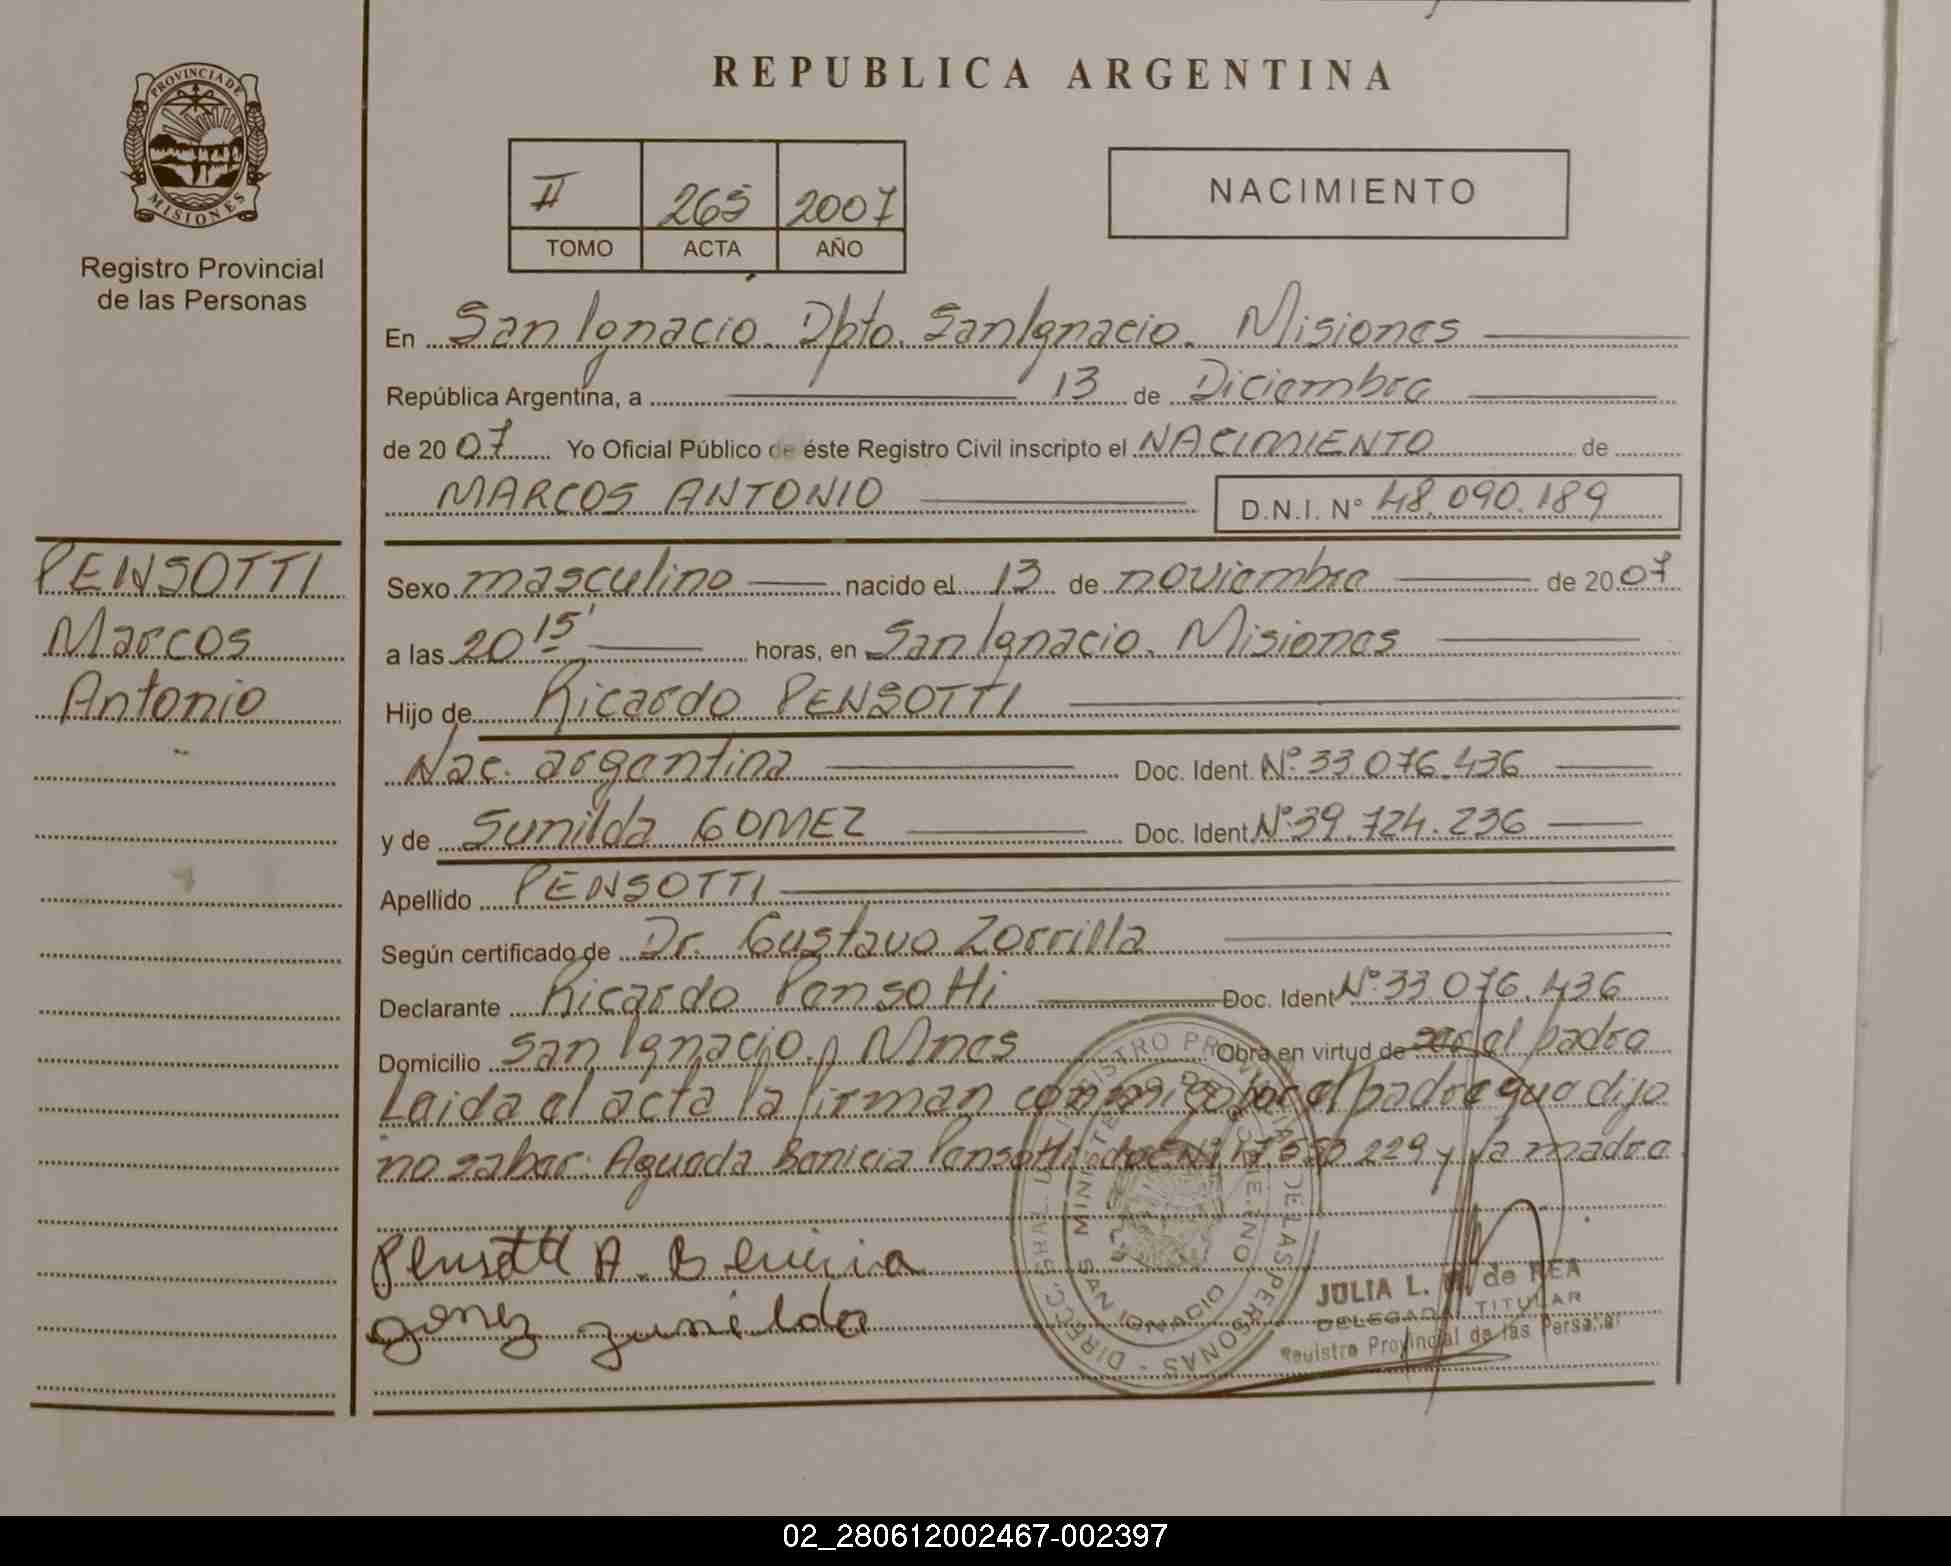 REPUBLICA ARGENTINA
PROVINCIA DE
MISIONES
Registro Provincial
de las Personas
II 265 2007
TOMO ACTA AÑO
NACIMIENTO
En San Ignacio. Dpto. San Ignacio. Misiones
República Argentina, a 13 de Diciembre
de 2007 Yo Oficial Público de éste Registro Civil inscripto el NACIMIENTO de
MARCOS ANTONIO D.N.I. Nº 48.090.189
PENSOTTI
Marcos
Antonio
Sexo masculino nacido el 13 de noviembre de 2007
a las 20 15' horas, en San Ignacio. Misiones
Hijo de Ricardo PENSOTTI
Nac. argentina Doc. Ident. Nº 33.076.436
y de Sunilda GOMEZ Doc. Ident. Nº 39.724.236
Apellido PENSOTTI
Según certificado de Dr. Gustavo Zorrilla
Declarante Ricardo Pensotti Doc. Ident Nº 33.076.436
Domicilio San Ignacio. Mnes Obra en virtud de ser el padre
Leida el acta la firman conmigo por el padre que dijo
no saber: Agueda Benicia Pensotti y la madre
Pensotti A. Benicia
gomez zunilda
DIRECC. GRAL. DEL REGISTRO PROVINCIAL DE LAS PERSONAS
MINISTERIO DE GOBIERNO
SAN IGNACIO
JULIA L. de REA
DELEGADA TITULAR
Registro Provincial de las Personas
02_280612002467-002397